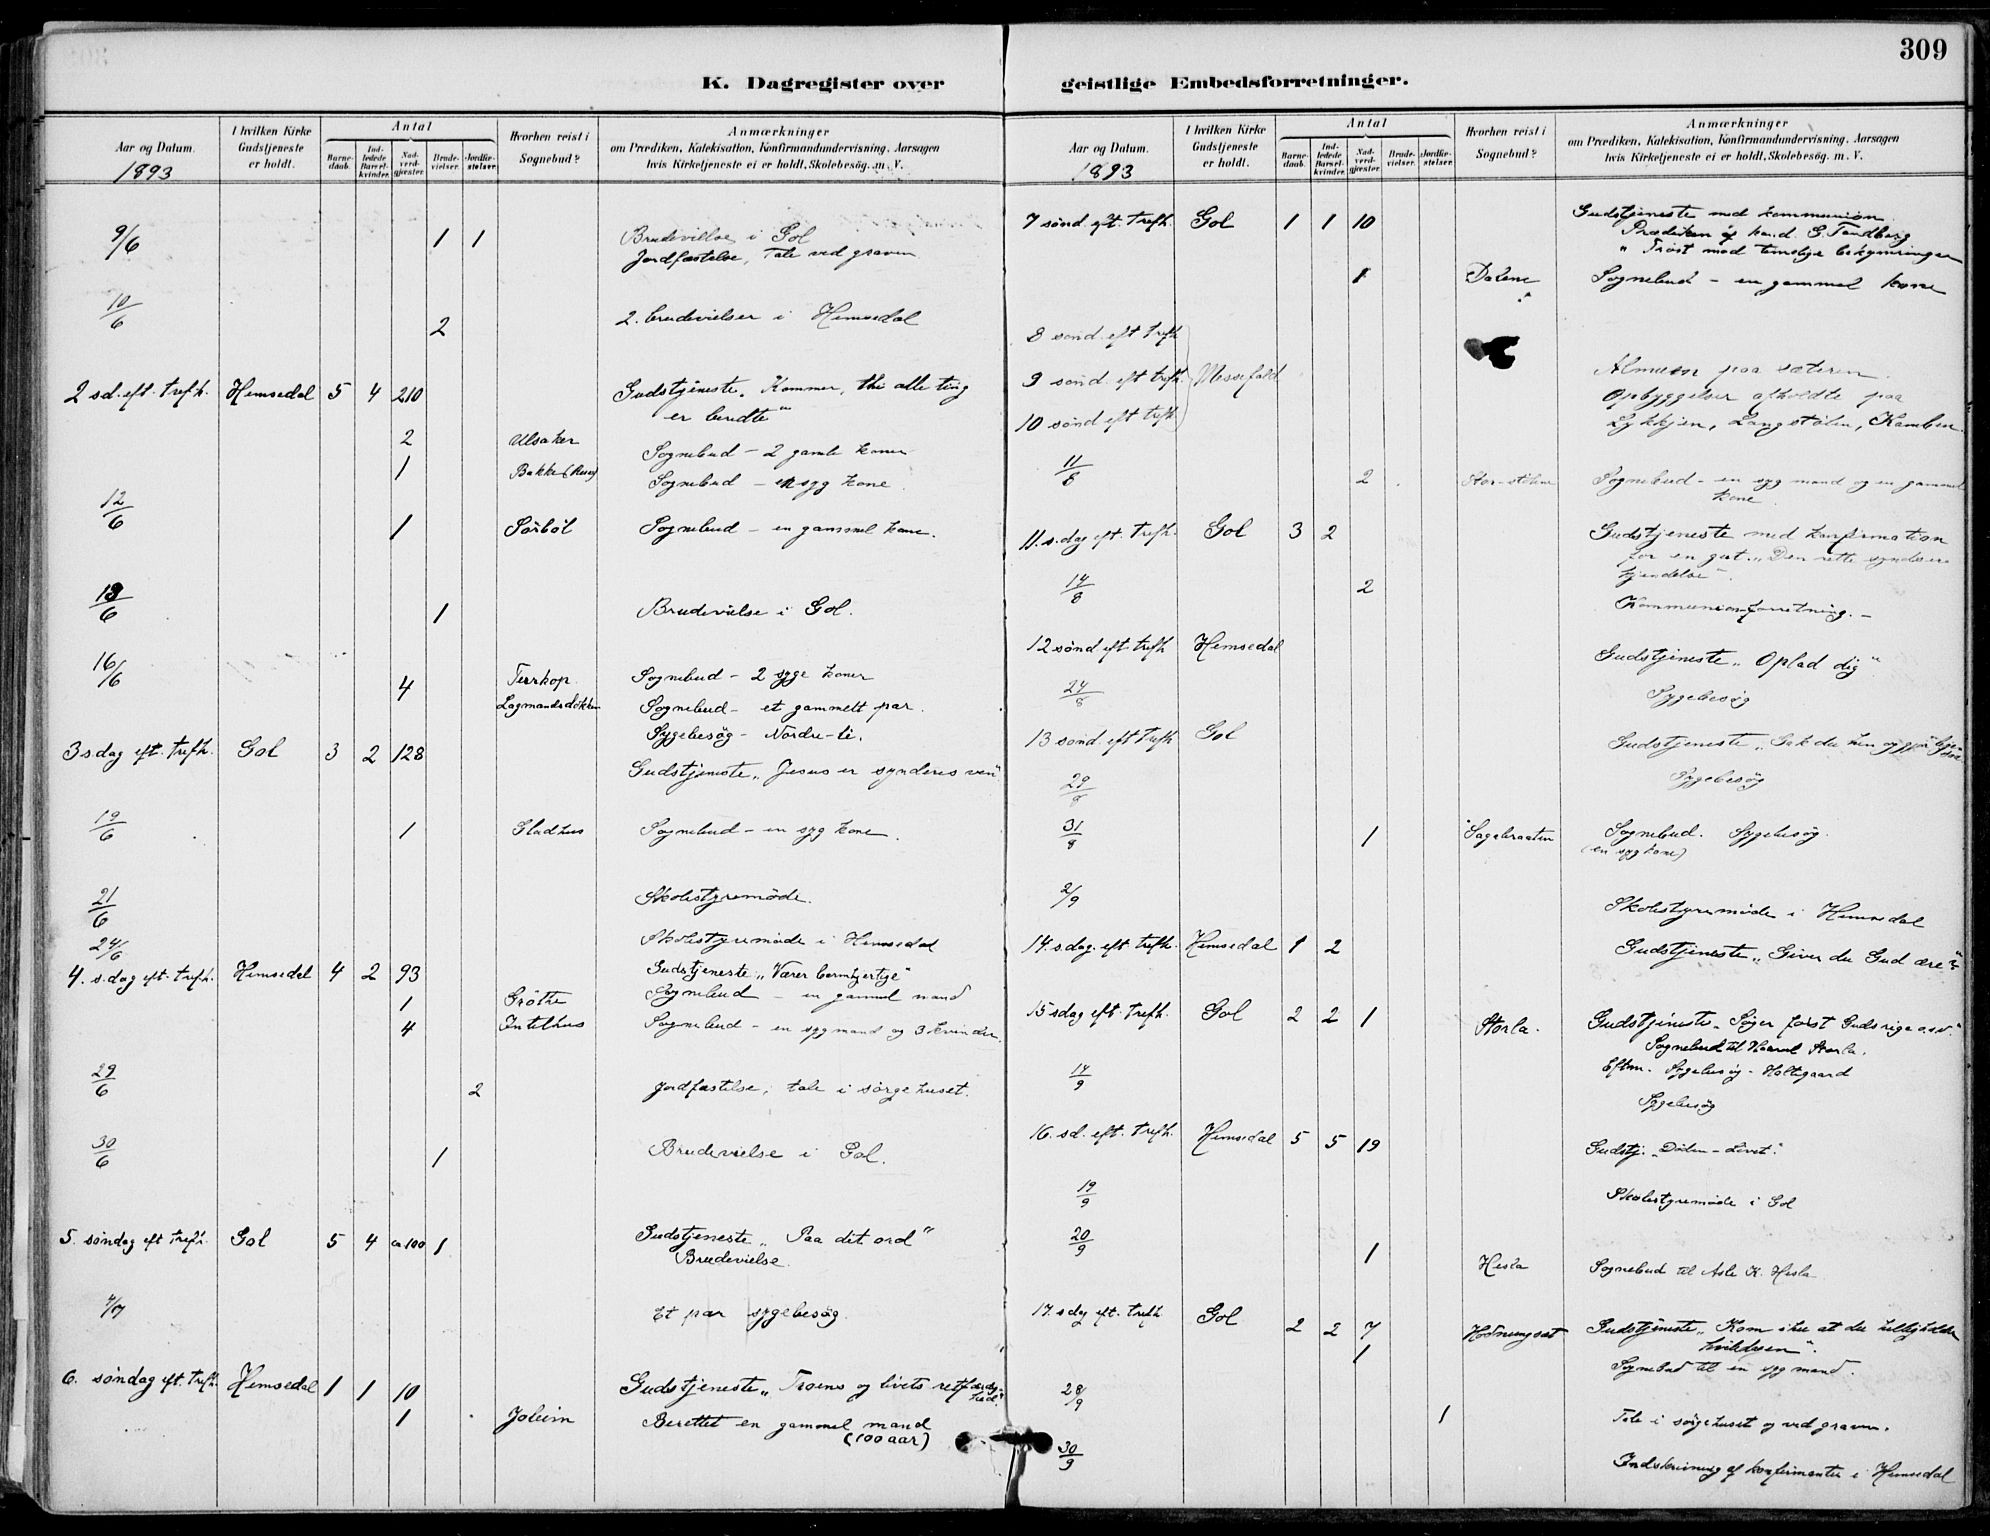 309
K. Dagregister over geistlige Embedsforretninger.
Aar og Datum.
1893
I hvilken Kirke Gudstjeneste er holdt.
Antal
Barnedaab.
Indledede Barselkvinder.
Nadverdgjæster.
Brudevielser.
Jordfæstelser.
Hvorhen reist i Sognebud?
Anmærkninger
om Prædiken, Katekisation, Konfirmandundervisning, Aarsagen
hvis Kirketjeneste ei er holdt, Skolebesög. m. V.
9/6 1 1 Brudevielse i Gol
Jordfæstelse, Tale ved graven
10/6 2 2. brudevielser i Hemsedal
2 sd. eft. trefh. Hemsedal 5 4 210 Gudstjeneste. "Kommer, thi alle ting
er beredte"
2 Ulsaker Sognebud – 2 gamle koner
1 Bakke Sognebud – en syg kone
12/6 1 Sörböl Sognebud – en gammel kone.
13/6 1 Brudevielse i Gol.
16/6 4 Torkop Sognebud – 2 syge koner
Lagmandsdokken Sognebud – et gammelt par.
Sygebesög – Nordre-li.
3 sdag eft. trefh. Gol 3 2 128
Gudstjeneste "Jesus er synderes ven"
19/6 1 Gladhus Sognebud – en syg kone.
21/6 Skolestyremöde.
24/6 Skolestyremöde i Hemsedal
4. s.dag eft. trefh. Hemsedal 4 2 93 Gudstjeneste "Værer barmhjertige"
1 Gröthe Sognebud – en gammel mand
4 Intelhus Sognebud – en syg mand og 3 kvinder.
29/6 2 Jordfæstelse, tale i sörgehuset.
30/6 1 Brudevielse i Gol.
5. söndag eft trefh. Gol 5 4 ca 100 1 Gudstjeneste "Paa dit ord"
Brudevielse.
4/7 Et par sygebesög
6. söndag eft. trefh. Hemsedal 1 1 10 Gudstjeneste "Troens og livets retfærdighed"
1 Joleim Berettet en gammel mand
(100 aar)
Aar og Datum.
1893
I hvilken Kirke Gudstjeneste er holdt.
Antal
Barnedaab.
Indledede Barselkvinder.
Nadverdgjæster.
Brudevielser.
Jordfæstelser.
Hvorhen reist i Sognebud?
Anmærkninger
om Prædiken, Katekisation, Konfirmandundervisning, Aarsagen
hvis Kirketjeneste ei er holdt, Skolebesög. m. V.
7 sönd. eft. trefh. Gol 1 1 10 Gudstjeneste med kommunion.
Prædiken af kand. G. Tandberg
"Tröst mod timelige bekymringer
1 Dalene Sognebud – en gammel kone
8 sönd. eft trefh
9 sönd. eft trefh. Messefald Almuen paa sæteren.
Opbyggelser afholdte paa
10 sönd eft trefh Lykkjen, Langstölen, Kamben.
11/8 2 Stor-stölene Sognebud – en syg mand og en gammel
kone.
11. s.dag eft. trefh. Gol 3 2 Gudstjeneste med konfirmation
for en gut. "Den rette synds er-
kjendelse".
14/8 2 Kommunionforretning. –
12 sönd eft trefh Hemsedal Gudstjeneste "Oplad dig"
24/8 Sygebesög
13 sönd. eft trefh Gol Gudstjeneste "Gak du hen og gjör
29/8 Sygebesög
31/8 1 Sagabraaten Sognebud. Sygebesög.
(en syg kone)
2/9 Skolestyremöde i Hemsedal
14. s.dag. eft trefh. Hemsedal 1 2 Gudstjeneste "Giver du Gud ære?"
15 sdag eft. trefh. Gol 2 2 1 Storla. Gudstjeneste "Söger först Guds rige o.s.v."
Sognebud til Storla.
Eftm. Sygebesög – Holtegaard
14/9 Sygebesög
16. sd. eft. trefh. Hemsedal 5 5 19 Gudstj. "Döden – Livet".
19/9 Skolestyremöde i Gol
20/9 1 Hesla Sognebud til Asle K. Hesla
17. sdg eft. trefh Gol 2 2 7 Gudstjeneste "Kom ihu at du helligholder
hviledagen".
1 Sognebud til en syg mand.
28/9 1 Tale i sörgehuset og ved graven.
30/9 Indskrivning af konfirmanter i Hemsedal